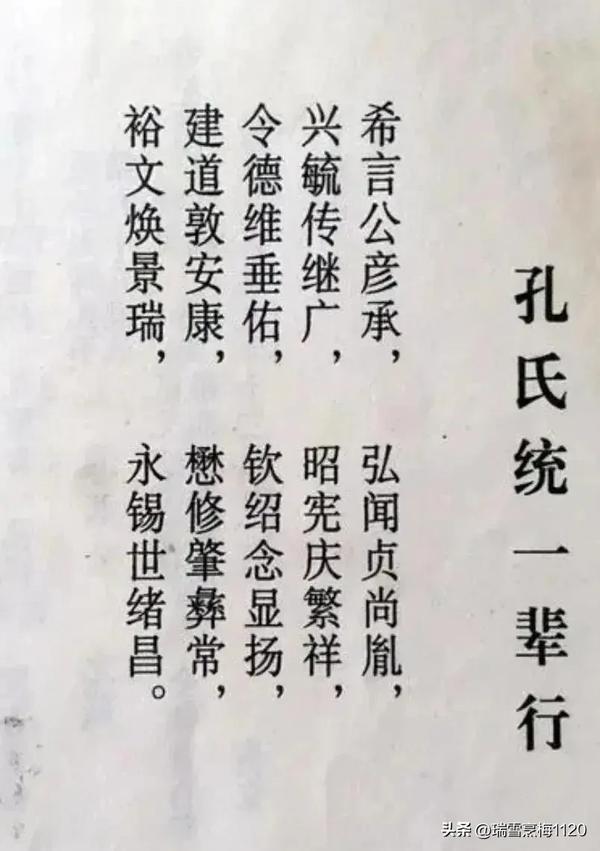 孔氏统一辈行
希言公彦承，弘闻贞尚胤，
兴毓传继广，昭宪庆繁祥，
令德维垂佑，钦绍念显扬，
建道敦安康，懋修肇彝常，
裕文焕景瑞，永锡世绪昌。
头条 @瑞雪烹梅1120